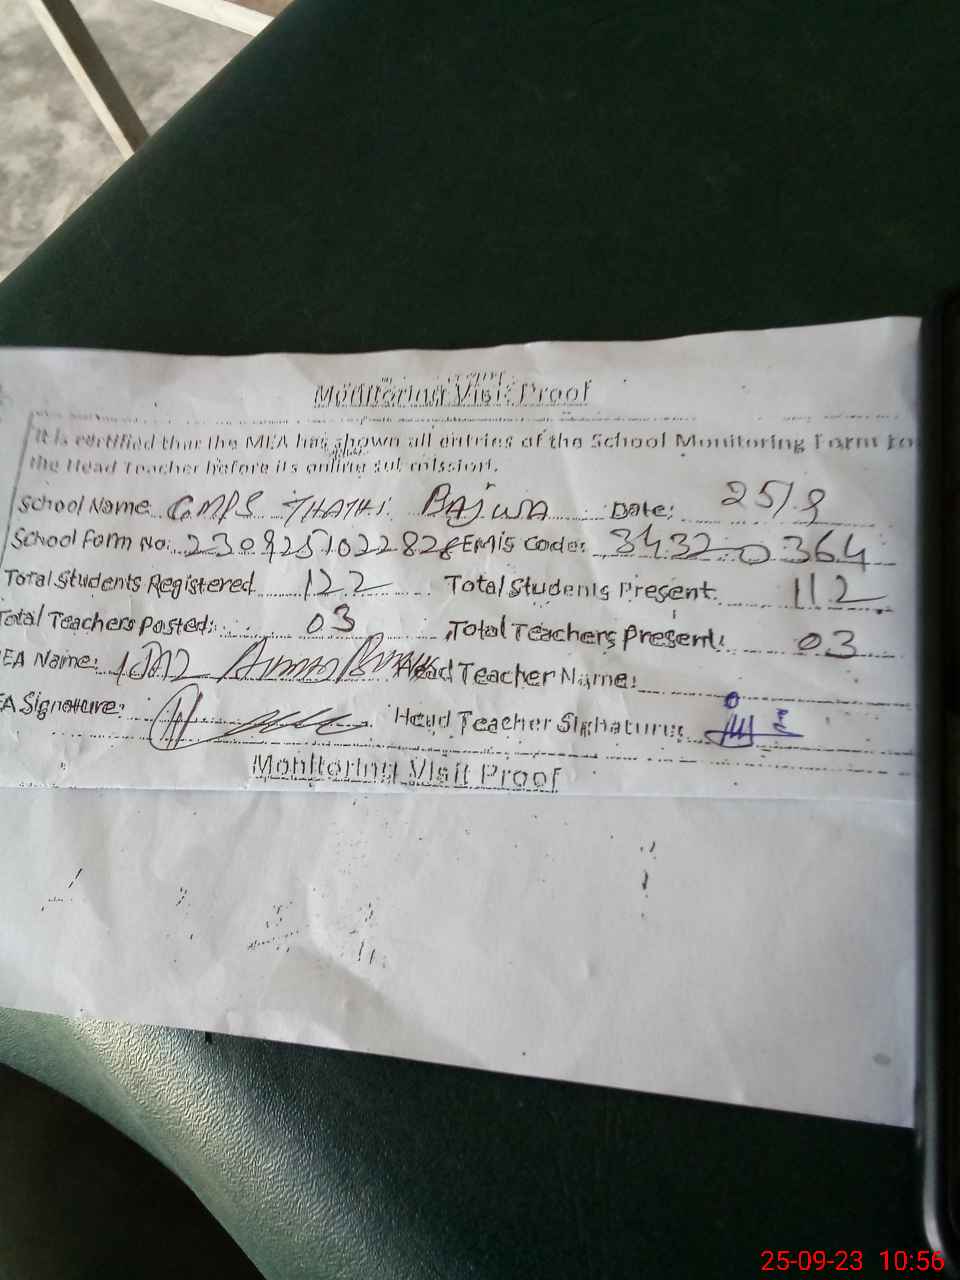 Monitoring Visit Proof
It is certified that the MEA has shown all entries of the School Monitoring Form to
the Head Teacher before its online submission.
School Name GMPS THATHI BAJWA Date: 25/9
School Form No: 2309251022828 EMIS Code: 34320364
Total Students Registered 122 Total Students Present 112
Total Teachers Posted: 03 Total Teachers Present: 03
EA Name: Ahmad Head Teacher Name:
EA Signature: Head Teacher Signature:
Monitoring Visit Proof
25-09-23 10:56